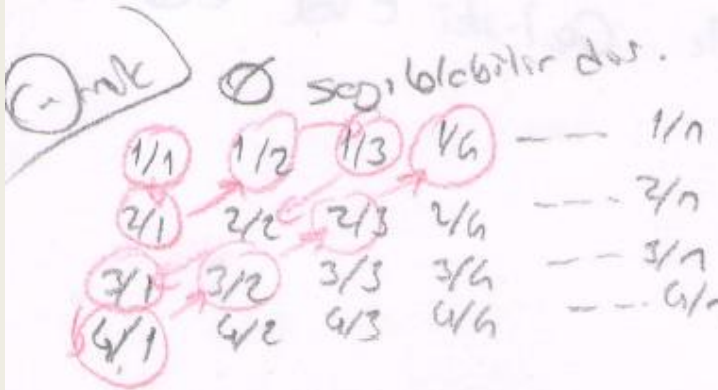 Örnek Q sayılabilirdir.
1/1 1/2 1/3 1/4 --- 1/n
2/1 2/2 2/3 2/4 --- 2/n
3/1 3/2 3/3 3/4 --- 3/n
4/1 4/2 4/3 4/4 --- 4/n